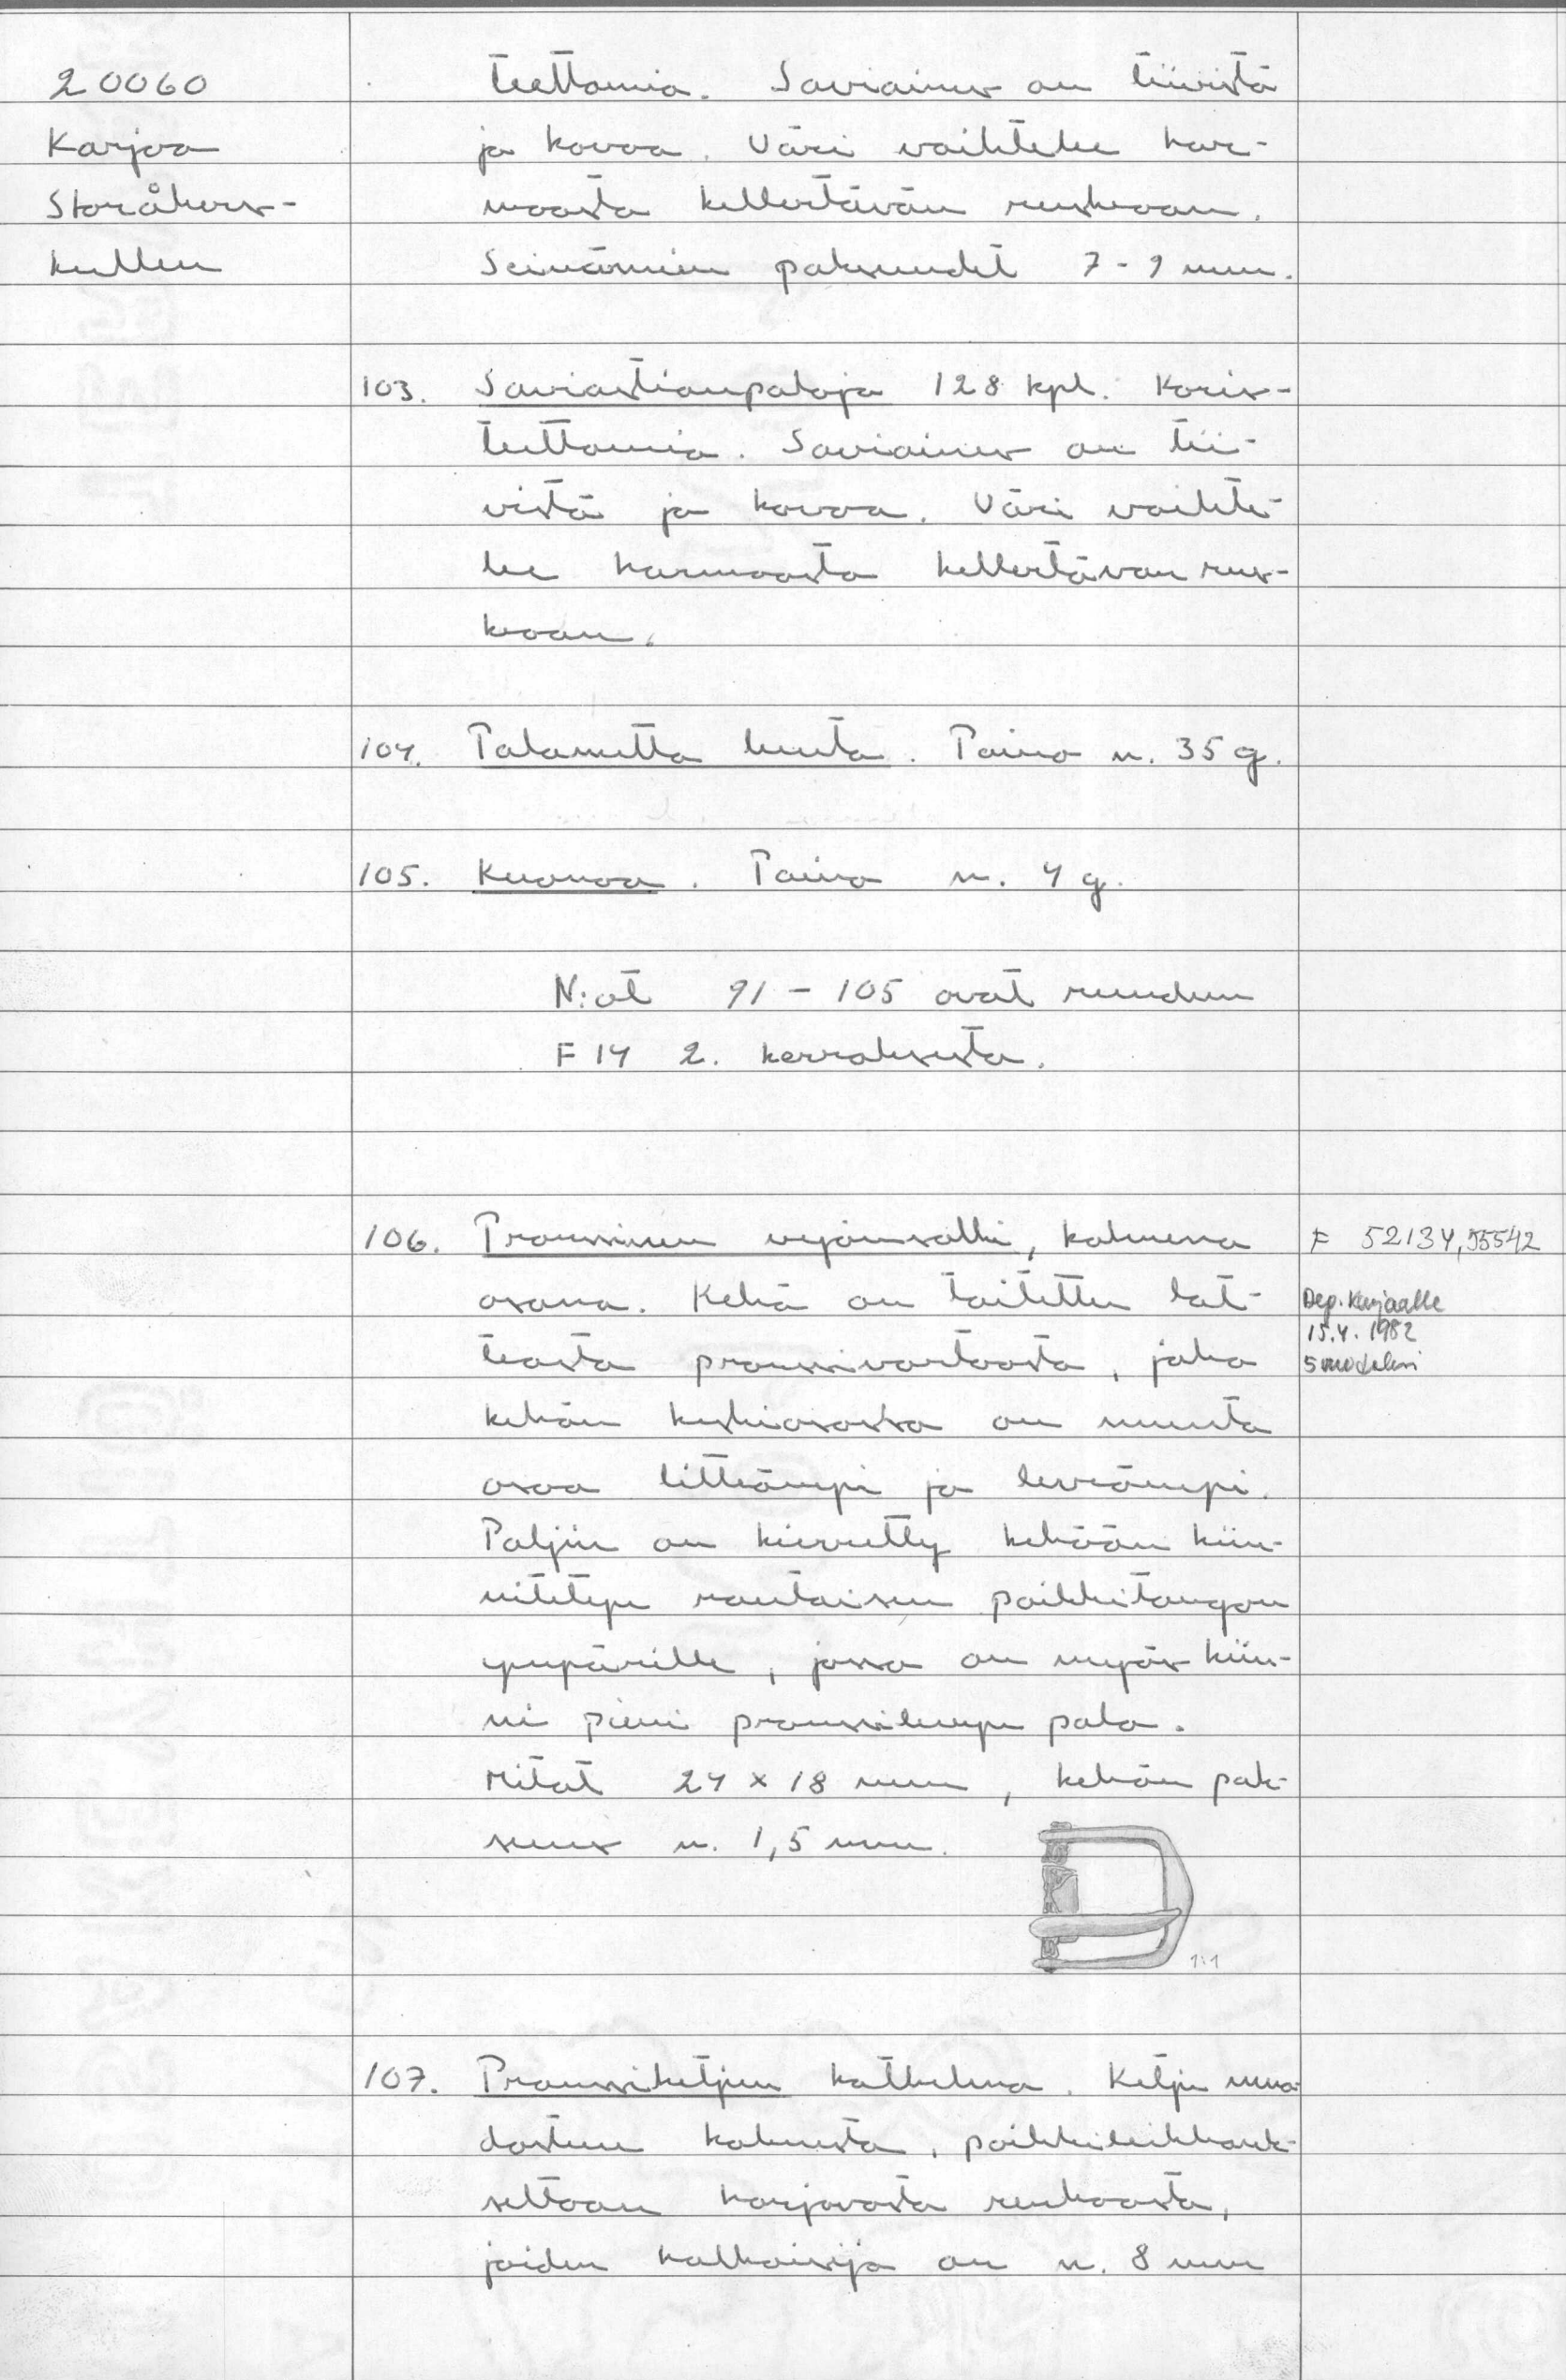 20060
Karjaa
Storåkers-
kullen
teettomia. Saviaines on tiivistä
ja kovaa. Väri vaihtelee har-
maasta kellertävän ruskeaan.
Seinämien paksuudet 7-9 mm.
103. Saviastianpaloja 128 kpl. Koris-
teettomia. Saviaines on tii-
vistä ja kovaa. Väri vaihte-
lee harmaasta kellertävän rus-
keaan.
104. Palanutta luuta. Paino n. 35 g.
105. Kuonaa. Paino n. 4 g.
N:ot 91 - 105 ovat ruudun
F 14 2. kerroksesta.
106. Pronssinen vyönsolki, kolmena
osana. Kehä on taitettu lat-
teasta pronssivartaasta, joka
kehän keskiosassa on muuta
osaa litteämpi ja leveämpi.
Soljin on kierretty kehään kiin-
nitetyn rautaisen poikkitangon
ympärille, jossa on myös kiin-
ni pieni pronssilevyn pala.
Mitat 24 x 18 mm, kehän pak-
suus n. 1,5 mm.
F 52134, 55542
Dep. Karjaalle
15.4. 1982
5 vuodeksi
1:1
107. Pronssiketjun katkelma. Ketju muo-
dostuu kolmesta, poikkileikkauk-
seltaan harjavasta renkaasta,
joiden halkaisija on n. 8 mm